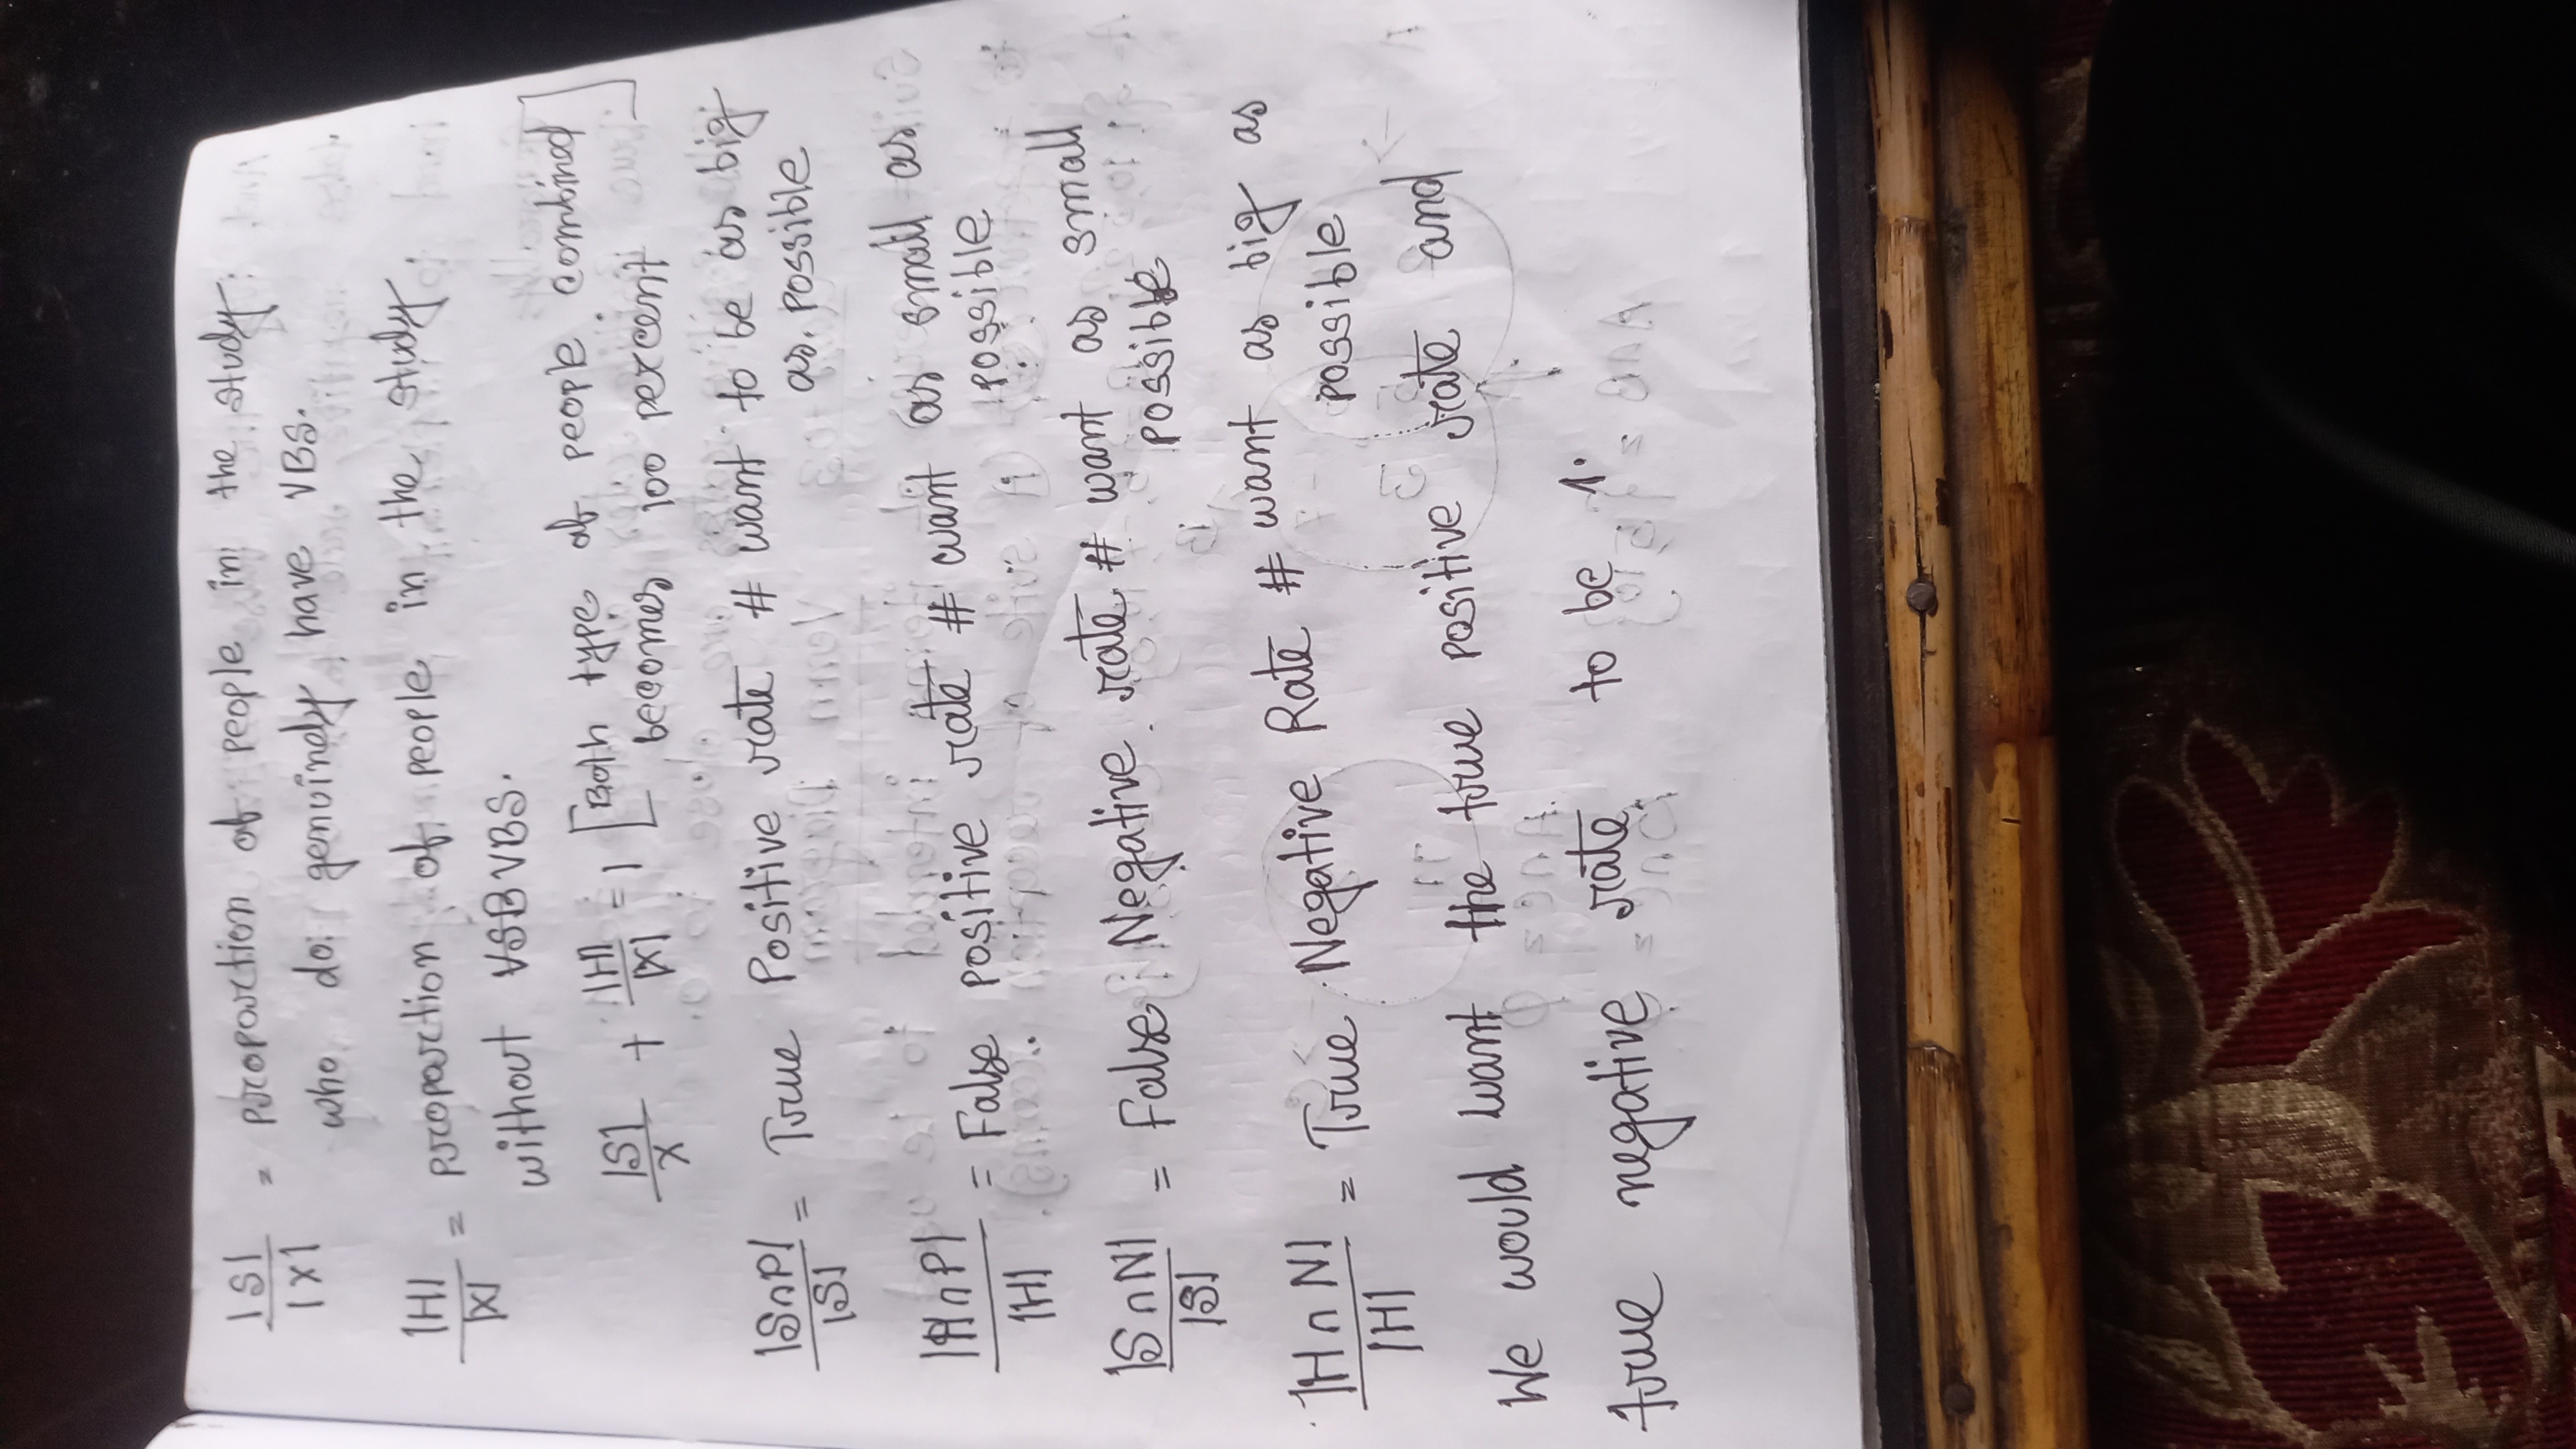 |S|/|X| = proportion of people in the study
who do genuinely have VBS.
|H|/|X| = proportion of people in the study.
without VSB VBS.
|S|/X + |H|/|X| = 1 [Both type of people combined
becomes 100 percent]
|S∩P|/|S| = True Positive rate # want to be as big
as possible
|H∩P|/|H| = False positive rate # want as small as
possible
|S∩N|/|S| = False Negative rate # want as small
possible
|H∩N|/|H| = True Negative Rate # want as big as
possible
We would want the true positive rate and
true negative rate to be 1.